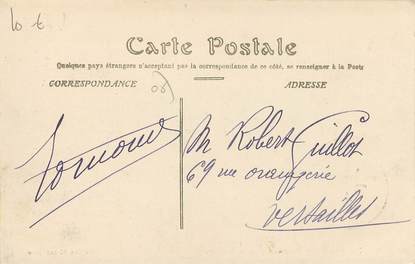 10 t
Carte Postale
Quelques pays étrangers n'acceptant pas la correspondance de ce côté, se renseigner à la Poste
CORRESPONDANCE
ADRESSE
M Robert Guillot
69 rue orangerie
Versailles